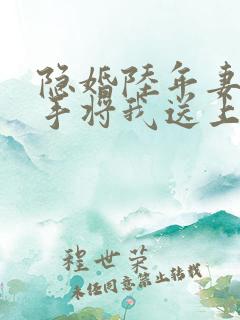 隐婚陆年妻
手将我送上
程世荣
未经同意禁止转载